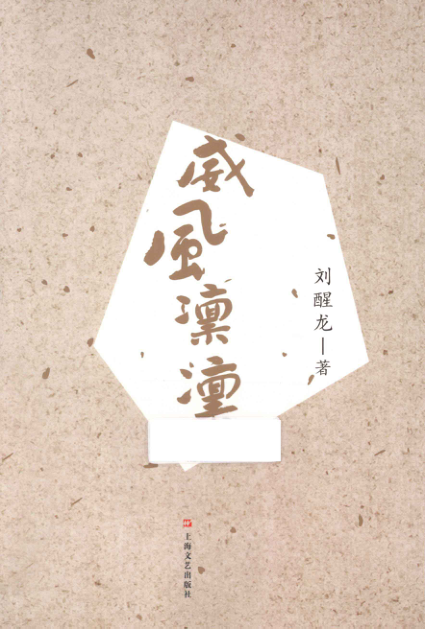 威風凛凛
刘醒龙—著
上海文艺出版社